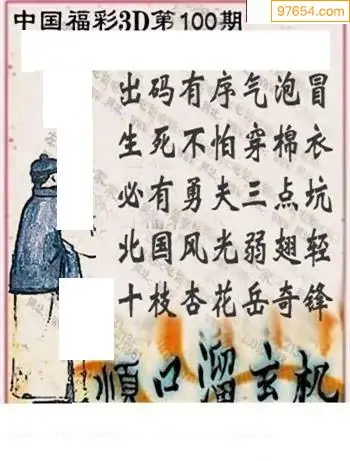 97654.com
中国福彩3D第100期
出码有序气泡冒
生死不怕穿棉衣
必有勇夫三点坑
北国风光弱翅轻
十枝杏花岳奇锋
顺口溜玄机